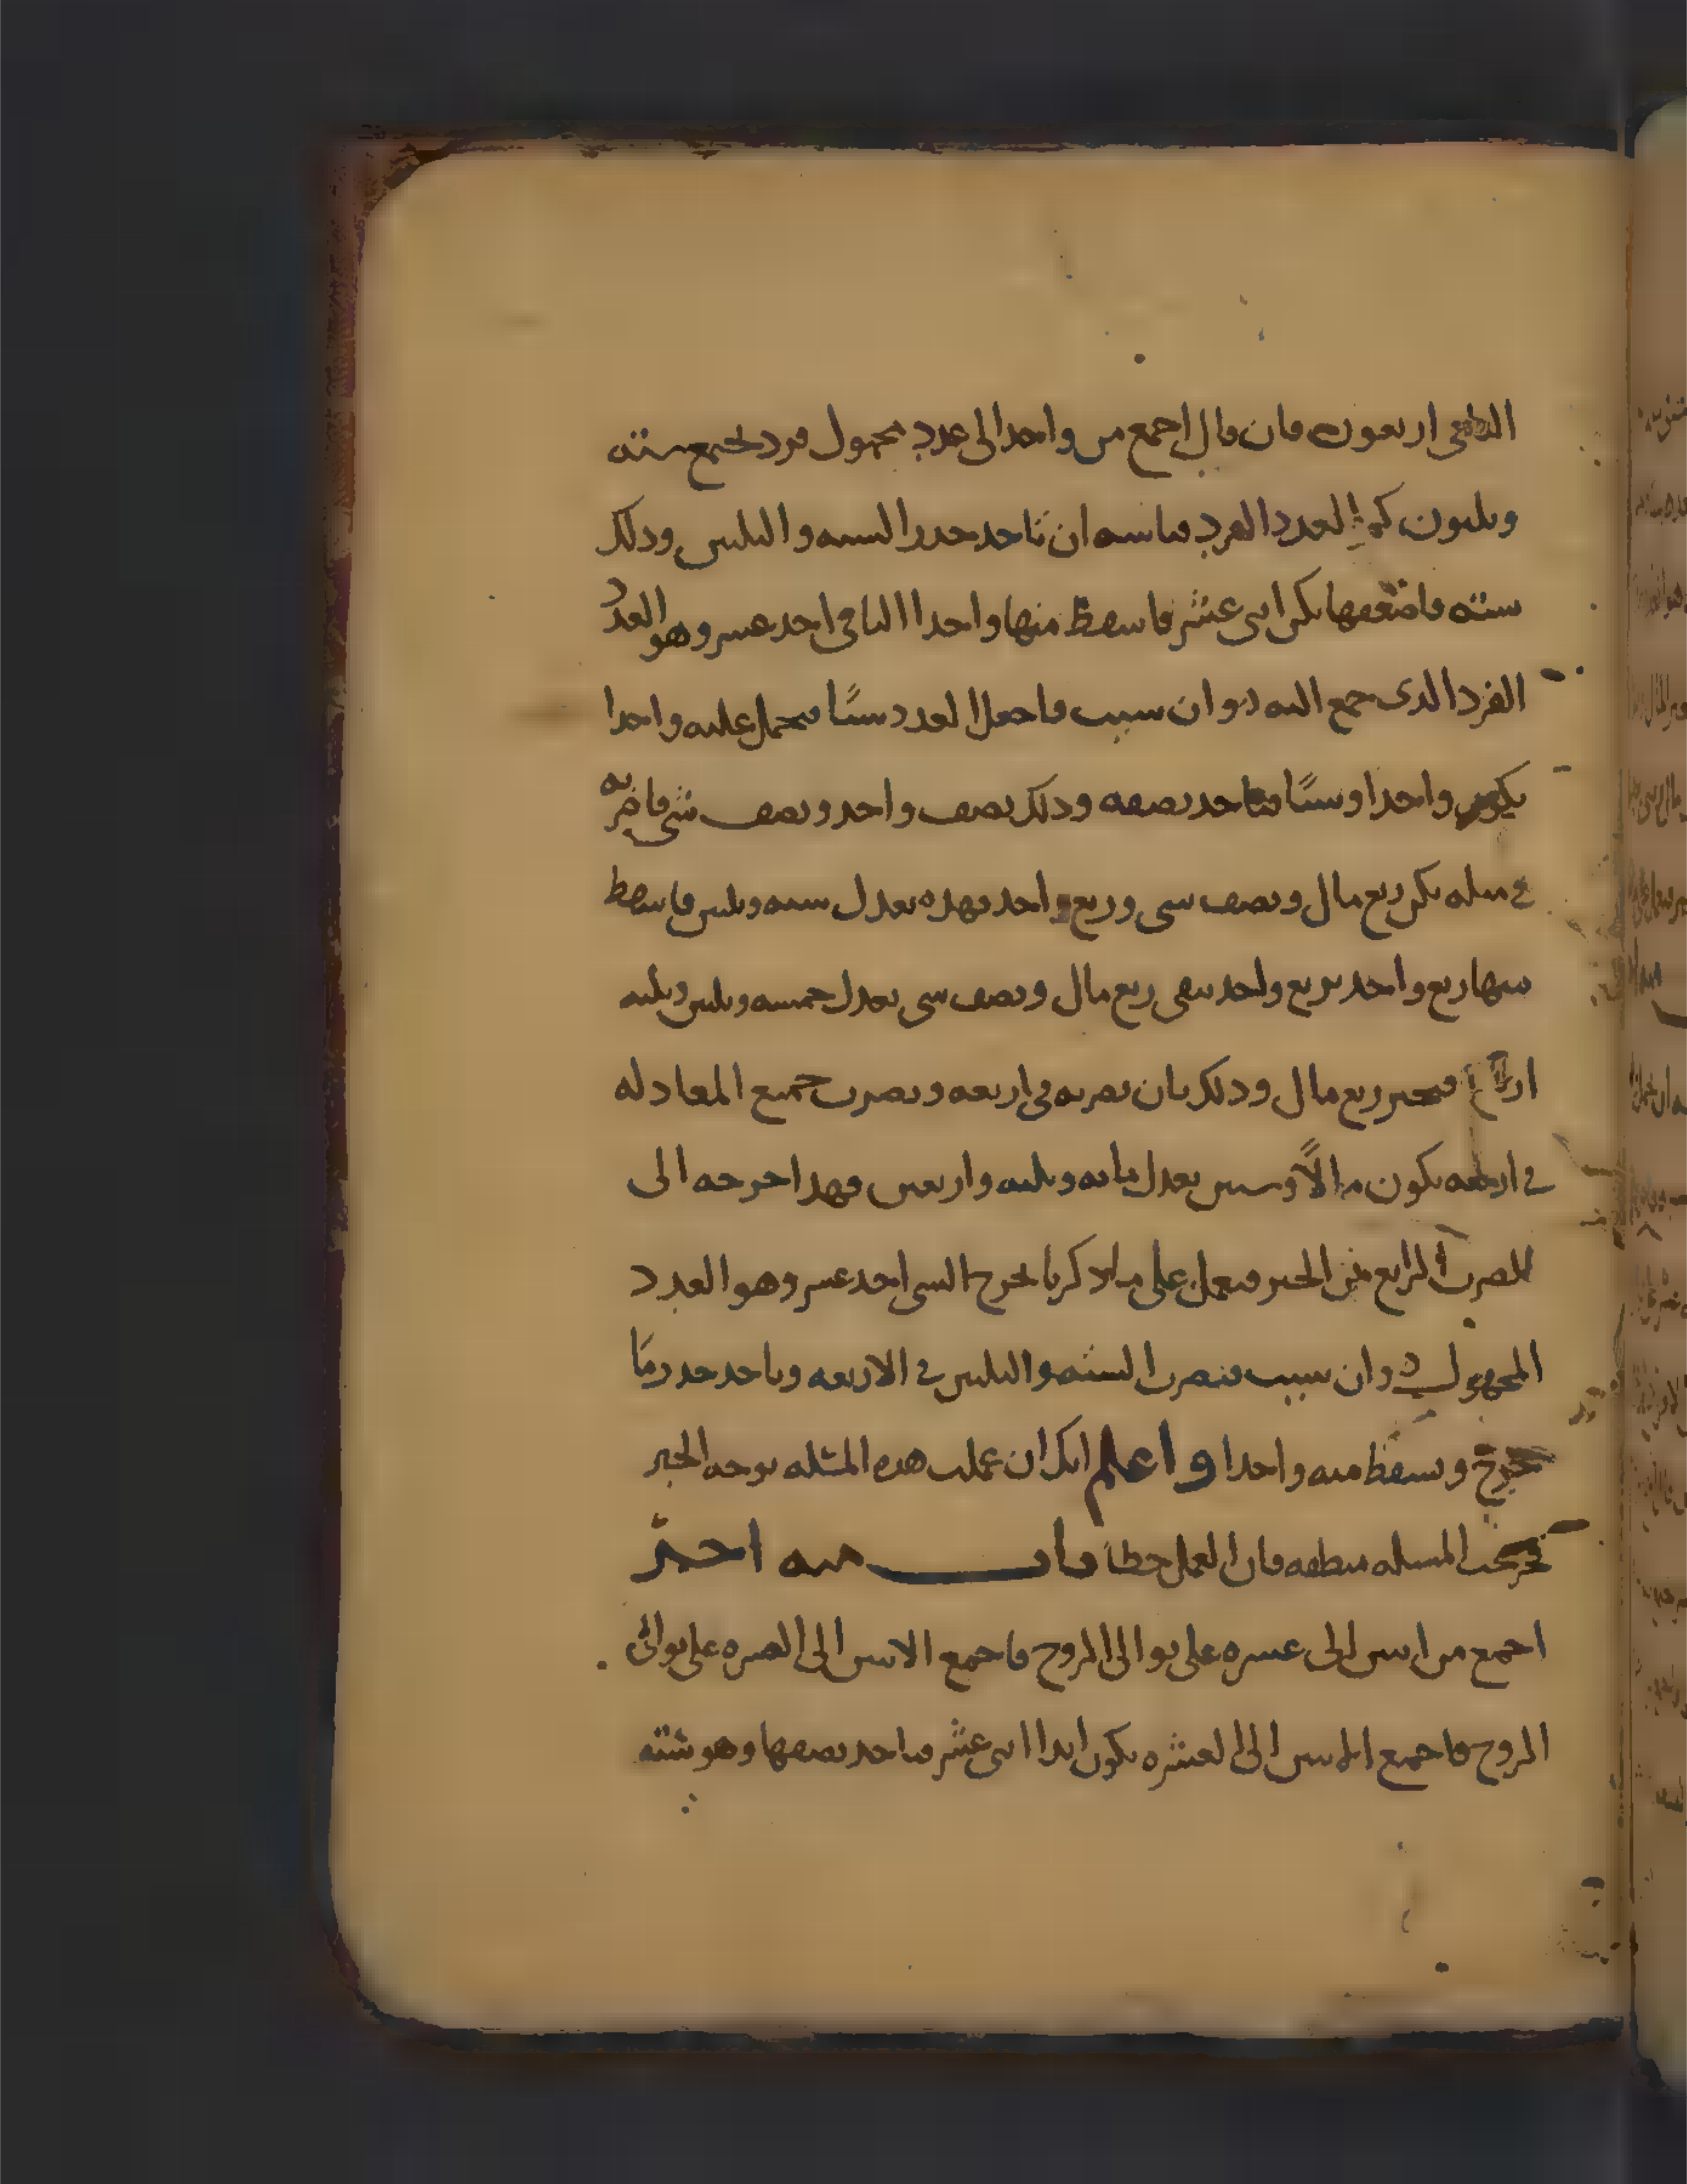 الباقي اربعون فان قال اجمع من واحد الى عدد مجهول فرد لجمع ستة
وثلثون كم العدد الفرد قياسه ان تاخد جدر الستة والثلثين ودلك
ستة فاضعفها يكن اثنى عشر فاسقط منها واحدا الباقي احد عشر وهو العدد
الفرد الدى جمع اليه وان شيت فاجعل العدد شيًا فتحمل عليه واحدا
يكون واحدا وشيًا فتاخد نصفه ودلك نصف واحد ونصف شي فاضربه
في مثله يكن ربع مال ونصف شي وربع واحد فهده تعدل ستة وثلثين فاسقط
منها ربع واحد بربع واحد يبقى ربع مال ونصف شي يعدل خمسة وثلثين وثلثة
ارباع فتجبر ربع مال ودلك بان تضربه في اربعة وتضرب جميع المعادلة
في اربعة يكون مالًا وشيين يعدل ماية وثلثة واربعين فهدا اخرجه الى
الضرب الرابع من الجبر فتعمل على ما دكرنا يخرج الشي احد عشر وهو العدد
المجهول وان شيت فتضرب الستة والثلثين في الاربعة وتاخد جدر ما
خرج وتسقط منه واحدا واعلم انك ان عملت هده المسئلة بوجه الجبر
فخرجت المسئلة منطقة فان العمل خطا باب منه اخر
اجمع من اثنين الى عشرة على توالى الزوج فاجمع الاثنين الى العشرة على توالى
الزوج فاجمع الاثنين الى العشرة يكون ابدا اثنى عشر فتاخد نصفها وهو ستة